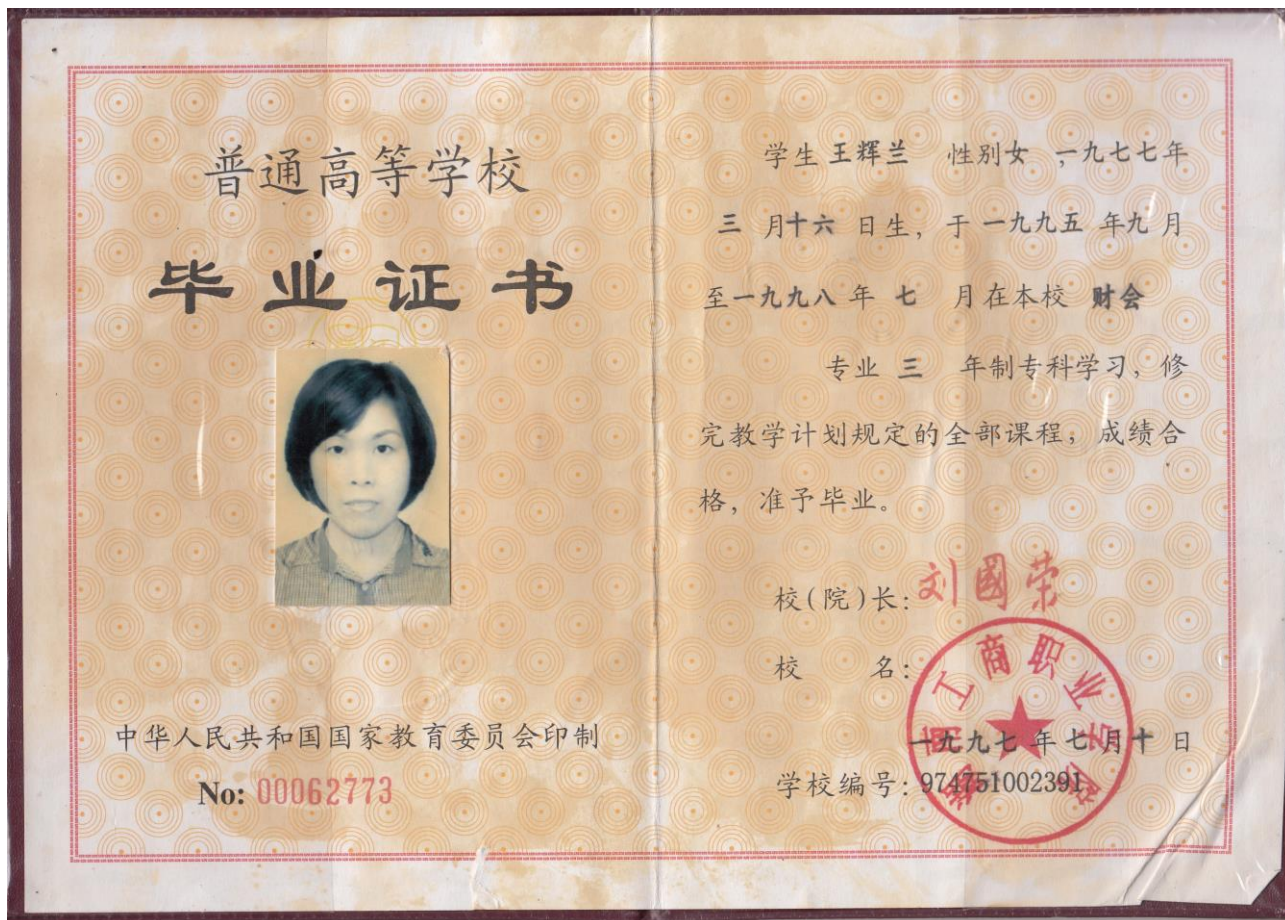 普通高等学校
毕业证书
中华人民共和国国家教育委员会印制
No: 00062773
学生 王辉兰 性别 女 ,一九七七年
三 月十六 日生, 于 一九九五 年九 月
至一九九八 年 七 月在本校 财会
专业 三 年制专科学习, 修
完教学计划规定的全部课程, 成绩合
格, 准予毕业。
校(院)长: 刘國荣
校 名:
工商职业学
一九九七 年七月十 日
学校编号: 974751002391